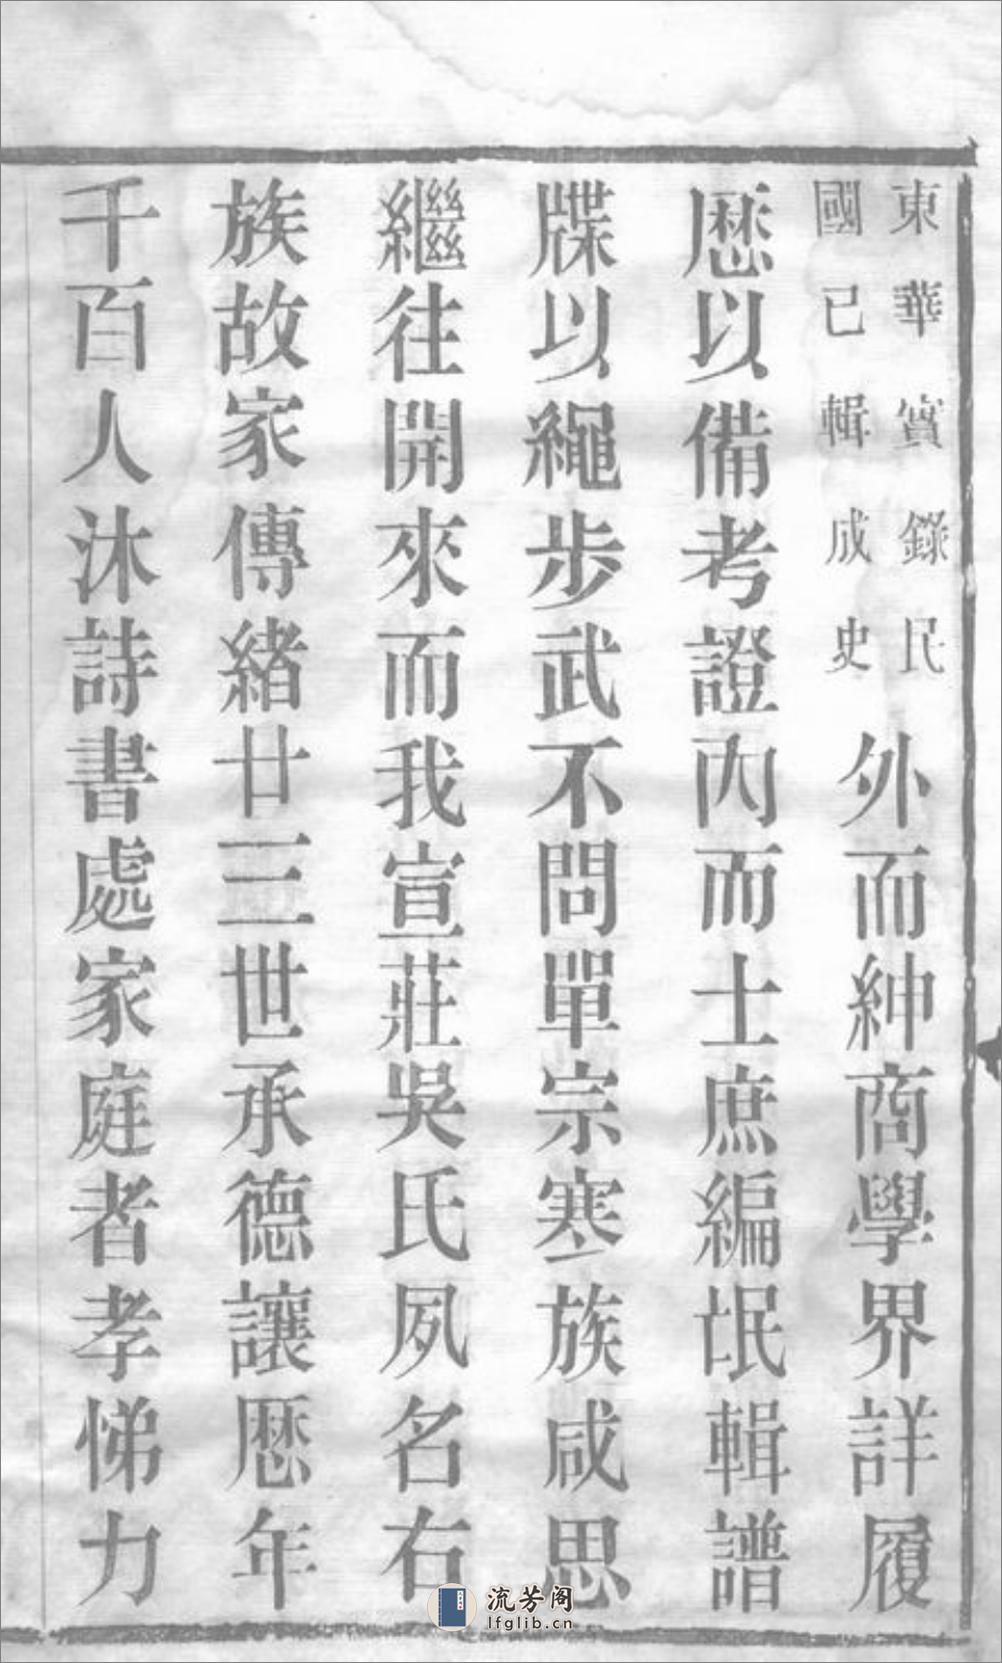 東華實錄民
國已輯成史
外而紳商學界詳履
厯以備考證內而士庶編氓輯譜
牒以繩步武不問單宗寒族咸思
繼往開來而我宣莊吳氏夙名右
族故家傳緒廿三世承德讓厯年
千百人沐詩書處家庭者孝悌力
流芳阁
lfglib.cn